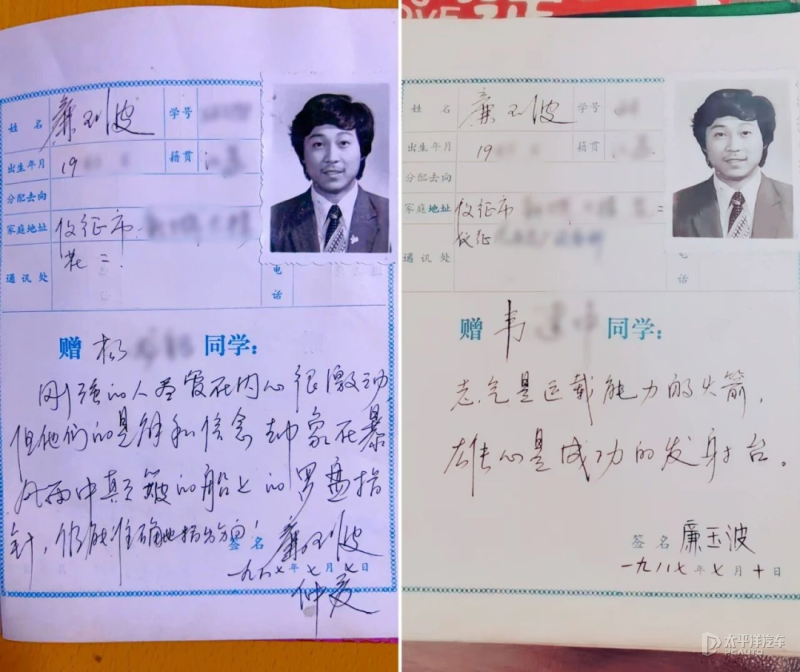 姓名 廉玉波 学号
出生年月 19 籍贯
分配去向
家庭地址 仪征市
通讯处
电话
赠 杨 同学：
刚强的人尽管在内心很激动
但他们的见解和信念却象在暴
风雨中颠簸的船上的罗盘指
针，仍能准确地指出方向！
签名 廉玉波
一九八七年七月七日
仲夏
姓名 廉玉波 学号
出生年月 19 籍贯
分配去向
家庭地址 仪征市
通讯处 仪征
赠 韦 同学：
志气是运载能力的火箭，
雄心是成功的发射台。
签名 廉玉波
一九八七年七月十日
太平洋汽车
PCAUTO